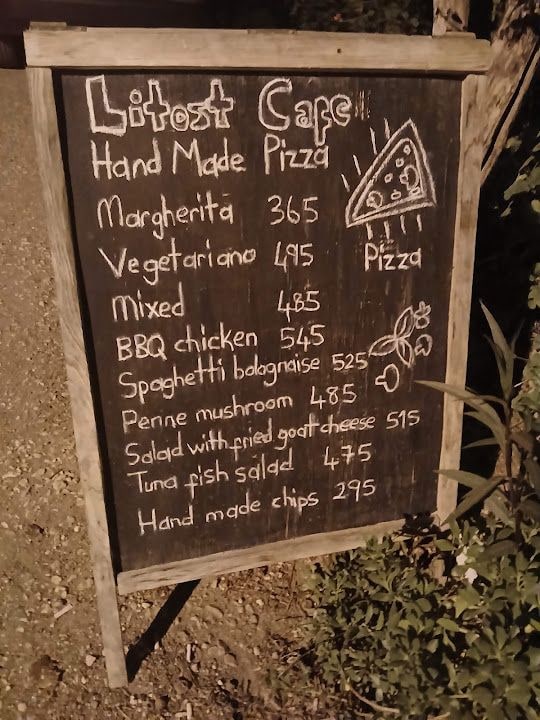 Litost Cafe
Hand Made Pizza
Margherita 365
Vegetariano 495
Pizza
Mixed 485
BBQ chicken 545
Spaghetti bolognaise 525
Penne mushroom 485
Salad with fried goat cheese 515
Tuna fish salad 475
Hand made chips 295